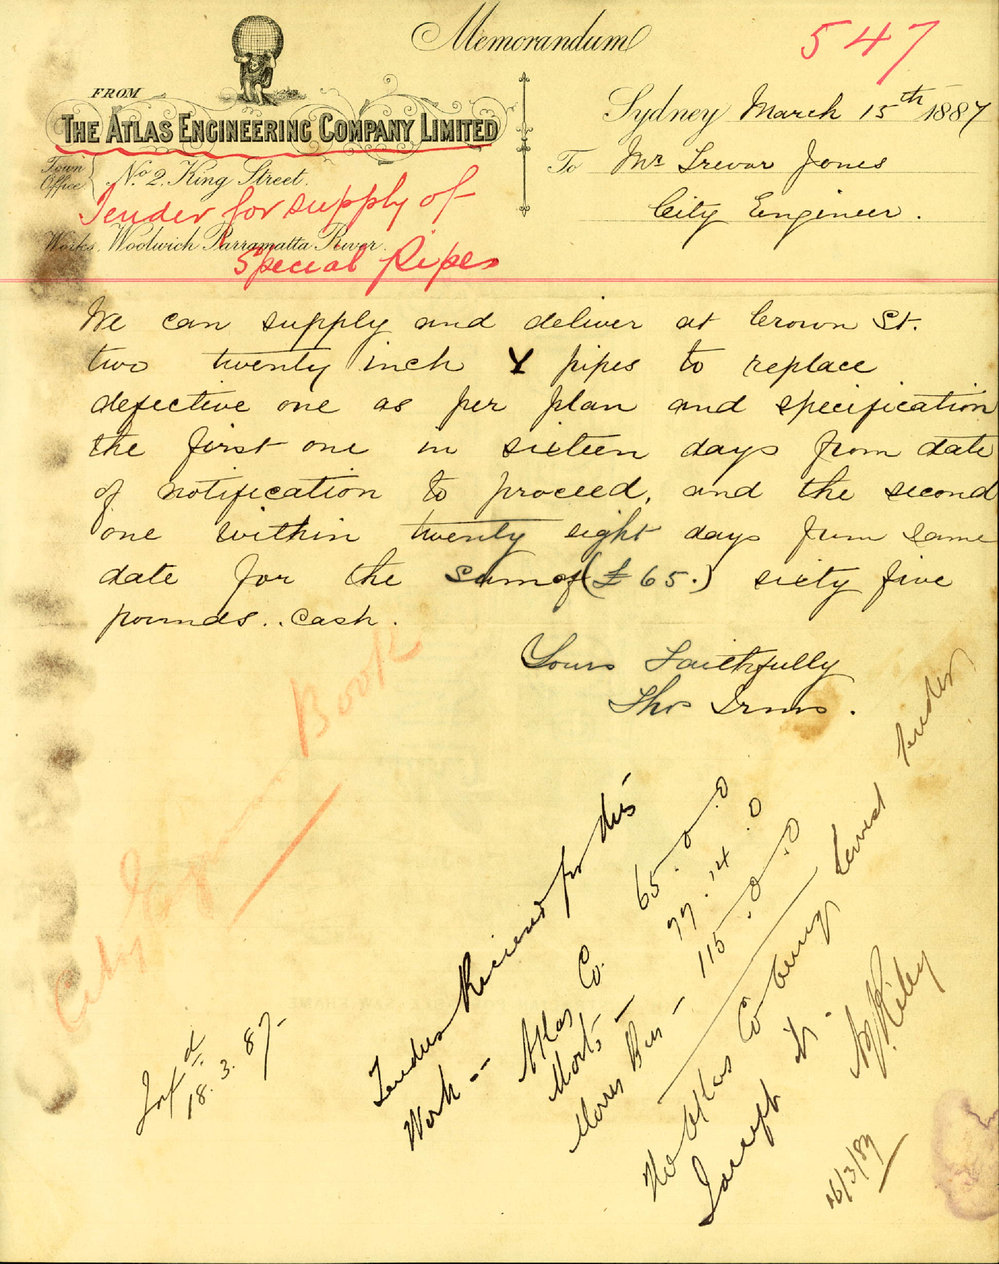 Memorandum
547
FROM
THE ATLAS ENGINEERING COMPANY LIMITED
Town Office No 2, King Street.
Works, Woolwich Parramatta River.
Tender for supply of
Special Pipes
Sydney March 15th 1887
To Mr Trevor Jones
City Engineer.
We can supply and deliver at Crown St.
two twenty inch Y pipes to replace
defective one as per plan and specification
the first one in sixteen days from date
of notification to proceed, and the second
one within twenty eight days from same
date for the sum of (£65.) sixty five
pounds.. cash.
Yours Faithfully
Thos
Book
City
Infd.
18.3.87-
Tenders Received for this
Work --
Atlas Co. 65.0.0
Morts - 77.14.0
Morris Bros - 115.0.0
The Atlas Co being lowest tender
I accept it -
Riley
16/3/87